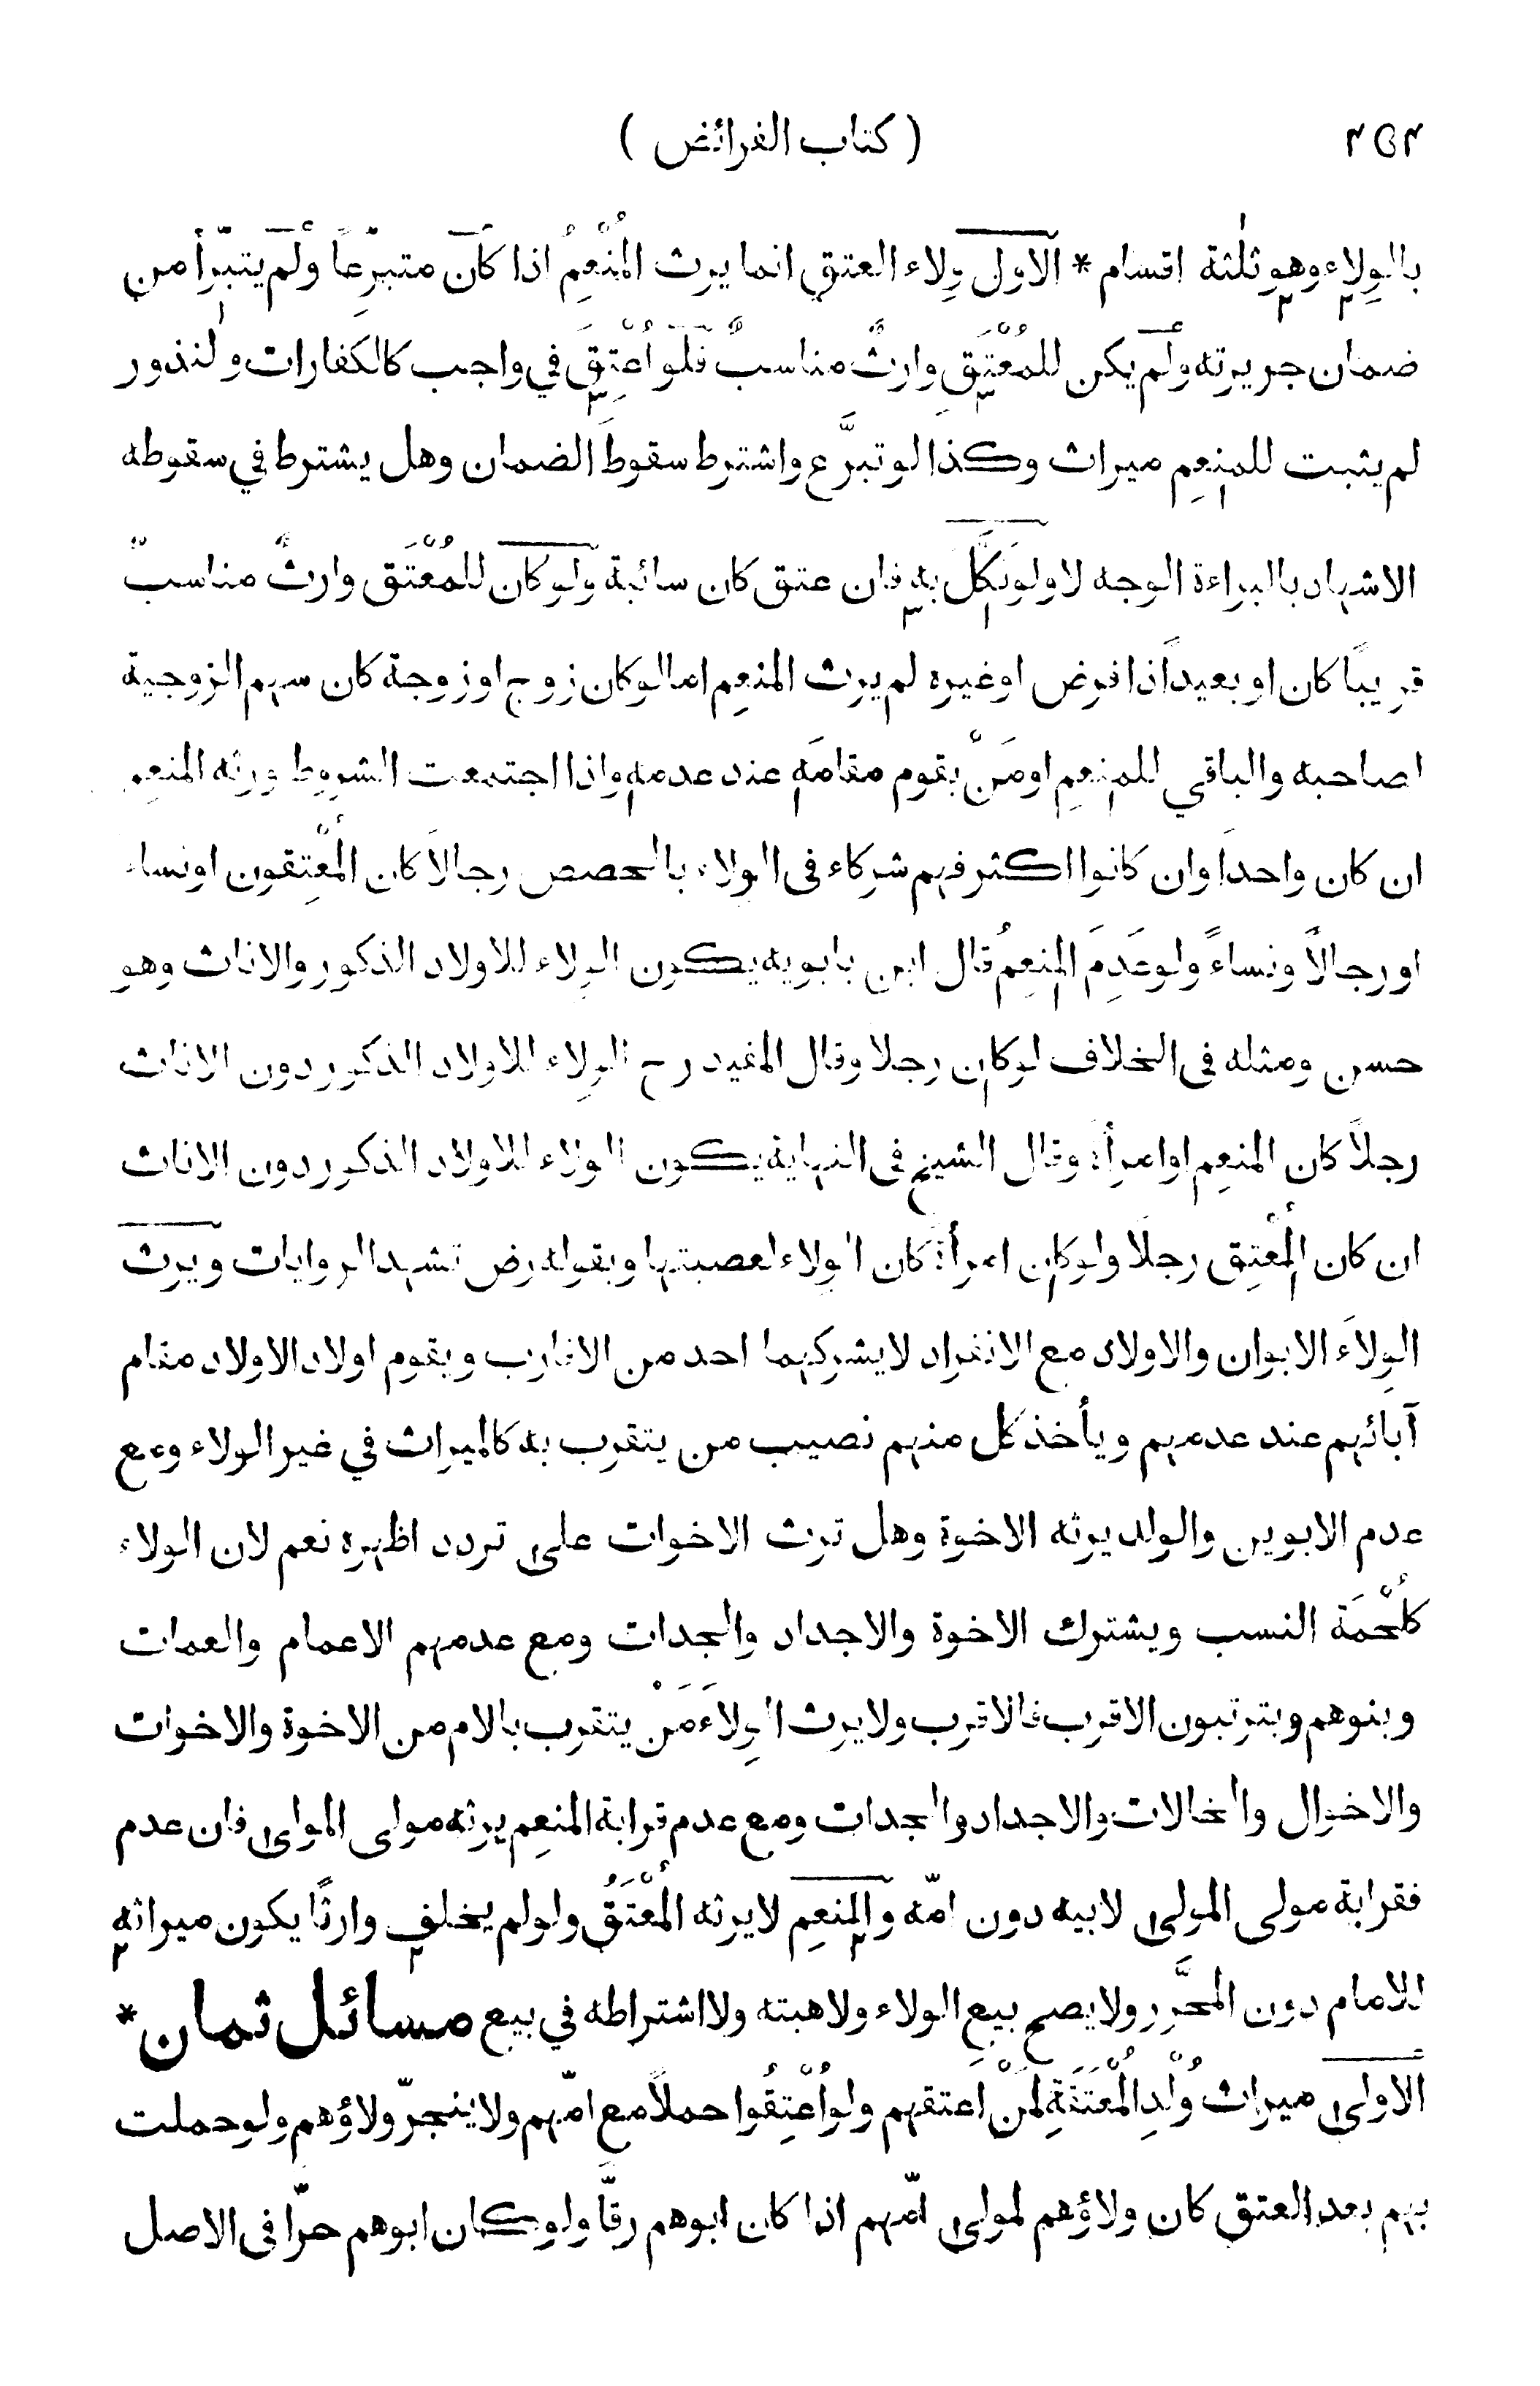 ٤٥٢ ( كتاب الفرائض )
بالوِلاء وهو ثلٰثة اقسام * الاول وِلاء العتق انما يرث المُنْعِمُ اذا كان متبرّعًا ولم يتبرّأ من
ضمان جريرته ولم يكن للمُعْتَقِ وارثٌ مناسبٌ فلو اُعْتِقَ في واجب كالكفارات والنذور
لم يثبت للمنعِم ميراث وكذا لو تبرَّع واشترط سقوطَ الضمان وهل يشترط في سقوطه
الاشهاد بالبراءة الوجه لا ولو نكَّل به فان عتق كان سائبة ولو كان للمُعْتَق وارثٌ مناسبٌ
قريبًا كان او بعيداً ذا فرض او غيره لم يرث المنعِم اما لو كان زوج او زوجة كان سهم الزوجية
لصاحبه والباقي للمنعِم او مَنْ يقوم مقامَه عند عدمه واذا اجتمعت الشروط ورثه المنعِم
ان كان واحداً وان كانوا اكثر فهم شركاء فى الولاء بالحصص رجالاً كان المُعْتِقون او نساء
او رجالاً ونساءً ولو عَدِمَ المنعِمُ قال ابن بابويه يكون الوِلاء للاولاد الذكور والاناث وهو
حسن ومثله فى الخلاف لو كان رجلا وقال المفيد رح الوِلاء للاولاد الذكور دون الاناث
رجلاً كان المنعِم او امرأة وقال الشيخ فى النهاية يكون الولاء للاولاد الذكور دون الاناث
ان كان المُعْتِق رجلاً ولو كان امرأةً كان الوِلاء لعصبتها وبقوله رض تشهد الروايات ويرث
الوِلاَء الابوان والاولاد مع الانفراد لا يشركهما احد من الاقارب ويقوم اولاد الاولاد مقام
آبائهم عند عدمهم ويأخذ كل منهم نصيب من يتقرب به كالميراث في غير الولاء ومع
عدم الابوين والولد يرثه الاخوة وهل ترث الاخوات على تردد اظهره نعم لان الولاء
كلُحْمَة النسب ويشترك الاخوة والاجداد والجدات ومع عدمهم الاعمام والعمات
وبنوهم ويترتبون الاقرب فالاقرب ولا يرث الوِلاَءَ مَنْ يتقرب بالام من الاخوة والاخوات
والاخوال والخالات والاجداد والجدات ومع عدم قرابة المنعِم يرثه مولى المولى فان عدم
فقرابة مولى المولى لابيه دون امّه والمنعِم لا يرثه المُعْتَقُ ولو لم يخلف وارثًا يكون ميراثه
للامام دون المحَّرِر ولا يصح بيع الولاء ولا هبته ولا اشتراطه في بيع مسائل ثمان *
الاولى ميراث وُلْدِ المُعْتَقَةِ لمَنْ اعتقهم ولو اُعْتِقُوا حملاً مع امّهم ولا ينجرّ ولاؤهم ولو حملت
بهم بعد العتق كان ولاؤهم لمولى امّهم اذا كان ابوهم رقًّا ولو كان ابوهم حرّا فى الاصل